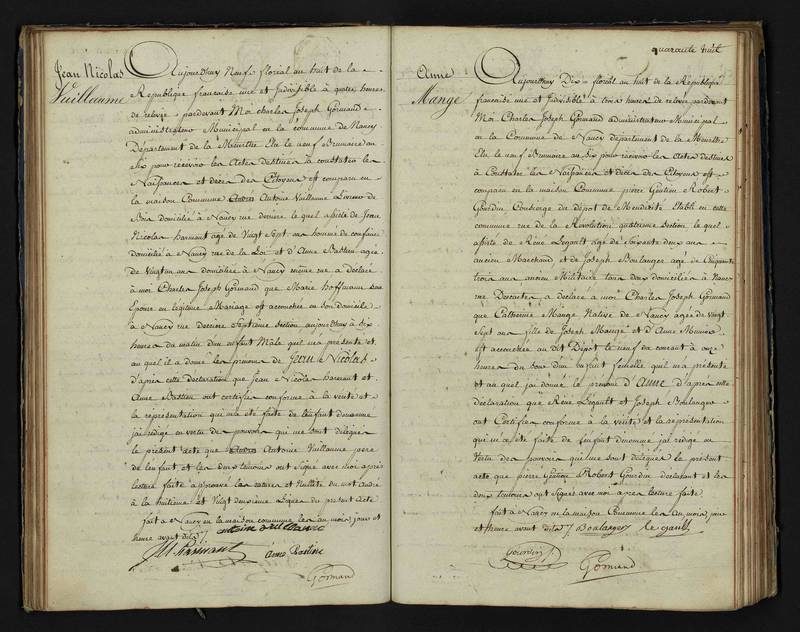 Jean Nicolas
Vuillaume
Aujourdhuy Neuf floréal an huit de la
République française une et Indivisible à quatre heures
de relevée pardevant Moi Charles Joseph Gormand
administrateur Municipal en la commune de Nancy
Département de la Meurthe Elu le neuf Brumaire an
Six pour recevoir les Actes destinés à constater les
Naissances et décès des Citoyens est comparu en
la maison Commune André Antoine Vuillaume
Bois domicilié à Nancy rue derriere le quel assisté de Jean
Nicolas harmant agé de Vingt Sept ans homme de confiance
domicilié à Nancy rue de la Loi et d'Anne Bastien agée
de Vingt un ans domiciliée à Nancy même rue a déclaré
à moi Charles Joseph Gormand que Marie hoffmann son
Epouse en légitime Mariage est accouchée en son domicile
à Nancy rue Derriere Septieme Section aujourdhuy à dix
heures du matin d'un enfant Mâle qu'il m'a présenté et
au quel il a donné les prenoms de Jean Nicolas
d'après cette Déclaration que Jean Nicolas harmant et
Anne Bastien ont certifiée conforme à la vérité et
la représentation qui m'a été faite de l'enfant dénommé
j'ai rédigé en vertu des pouvoirs qui me sont délégués
le présent acte que André Antoine Vuillaume pere
de l'enfant et les deux temoins ont signé avec moi après
lecture faite approuvé les ratures et Nullité du mot André
à la huitieme et Vingt deuxieme Lignes du présent Acte
fait à Nancy en la maison commune les an mois jour et
heure avant dits
antoine Vuillaume
harmant
Anne Bastien
Gormand
quarante huit
Anne
Mangé
Aujourdhuy Dix floréal an huit de la République
française une et Indivisible à trois heures de relevée pardevant
Moi Charles Joseph Gormand administrateur Municipal
en la Commune de Nancy département de la Meurthe
Elu le neuf Brumaire an Six pour recevoir les Actes destinés
à Constater les Naissances et décès des Citoyens est
comparu en la maison Commune pierre Robert
Gourdin Concierge du Dépot de Mendicité Etabli en cette
commune rue de la Révolution quatrieme Section le quel
assisté de René Legault agé de Soixante deux ans
ancien Marchand et de Joseph Boulanger agé de Cinquante
trois ans ancien Militaire tous deux domiciliés à Nancy
rue Descartes a déclaré à moi Charles Joseph Gormand
que Catherine Mangé Native de Nancy agée de Vingt
Sept ans fille de Joseph Mangé et d'Anne
est accouchée au dit Dépot le neuf du courant à onze
heures du Soir d'un enfant femelle qu'il m'a présenté
et au quel j'ai donné le prenom d'Anne d'après cette
déclaration que René Legault et Joseph Boulanger
ont Certifiée conforme à la vérité et la représentation
qui m'a été faite de l'enfant dénommé j'ai rédigé en
Vertu des pouvoirs qui me sont délégués le présent
acte que pierre Robert Gourdin déclarant et les
deux temoins ont signé avec moi après lecture faite
fait à Nancy en la maison Commune les an mois jour
et heure avant dits J. Boulanger Legault
Gourdin
Gormand